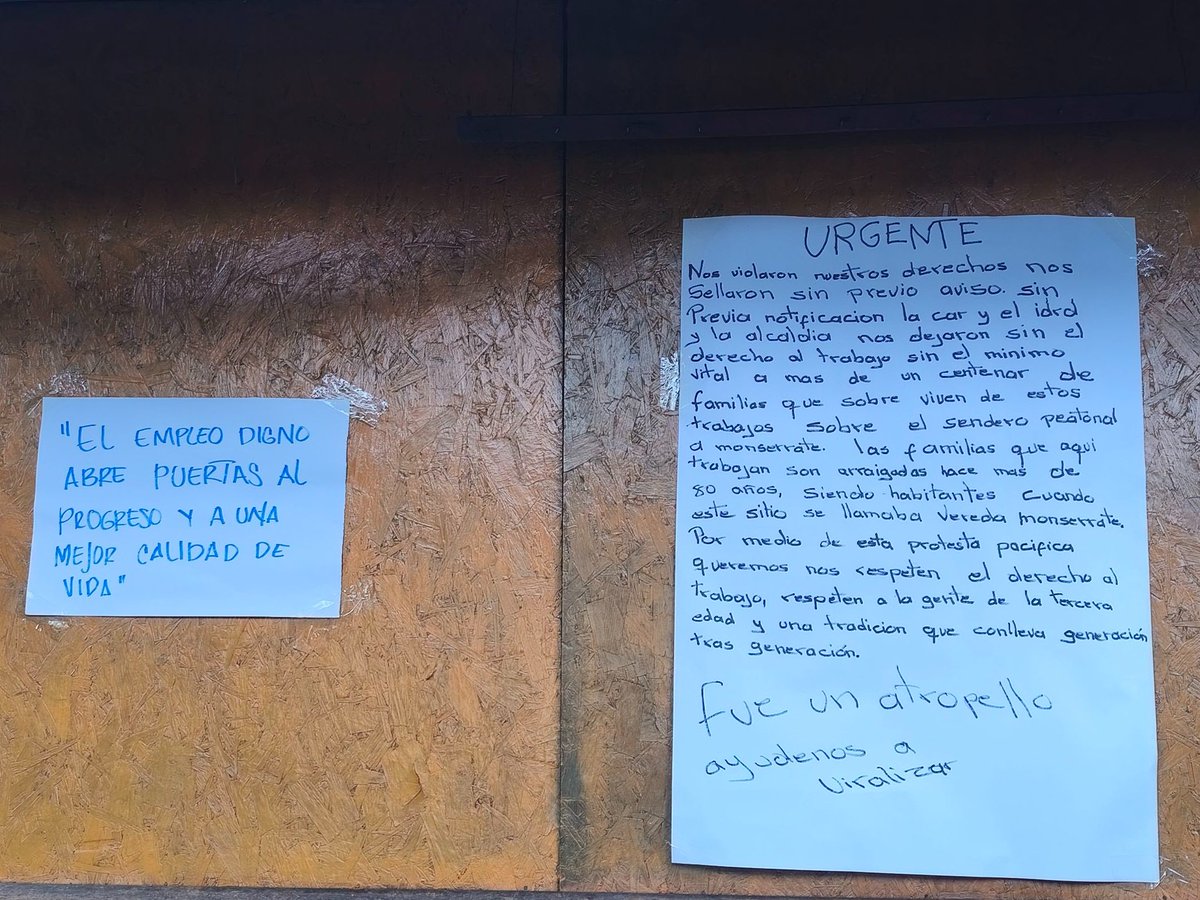 "EL EMPLEO DIGNO
ABRE PUERTAS AL
PROGRESO Y A UNA
MEJOR CALIDAD DE
VIDA"
URGENTE
Nos violaron nuestros derechos nos
Sellaron sin previo aviso. sin
Previa notificacion la car y el idrd
y la alcaldia nos dejaron sin el
derecho al trabajo sin el minimo
vital a mas de un centenar de
familias que sobre viven de estos
trabajos sobre el sendero peatonal
a monserrate. las familias que aqui
trabajan son arraigadas hace mas de
80 años, siendo habitantes cuando
este sitio se llamaba vereda monserrate.
Por medio de esta protesta pacifica
queremos nos respeten el derecho al
trabajo, respeten a la gente de la tercera
edad y una tradicion que conlleva generación
tras generación.
fue un atropello
ayudenos a
viralizar